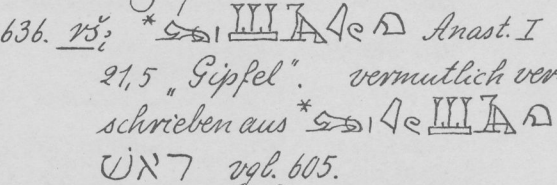 636. rš: * Anast. I
21,5 „Gipfel“. vermutlich ver
schrieben aus *
ראש vgl. 605.